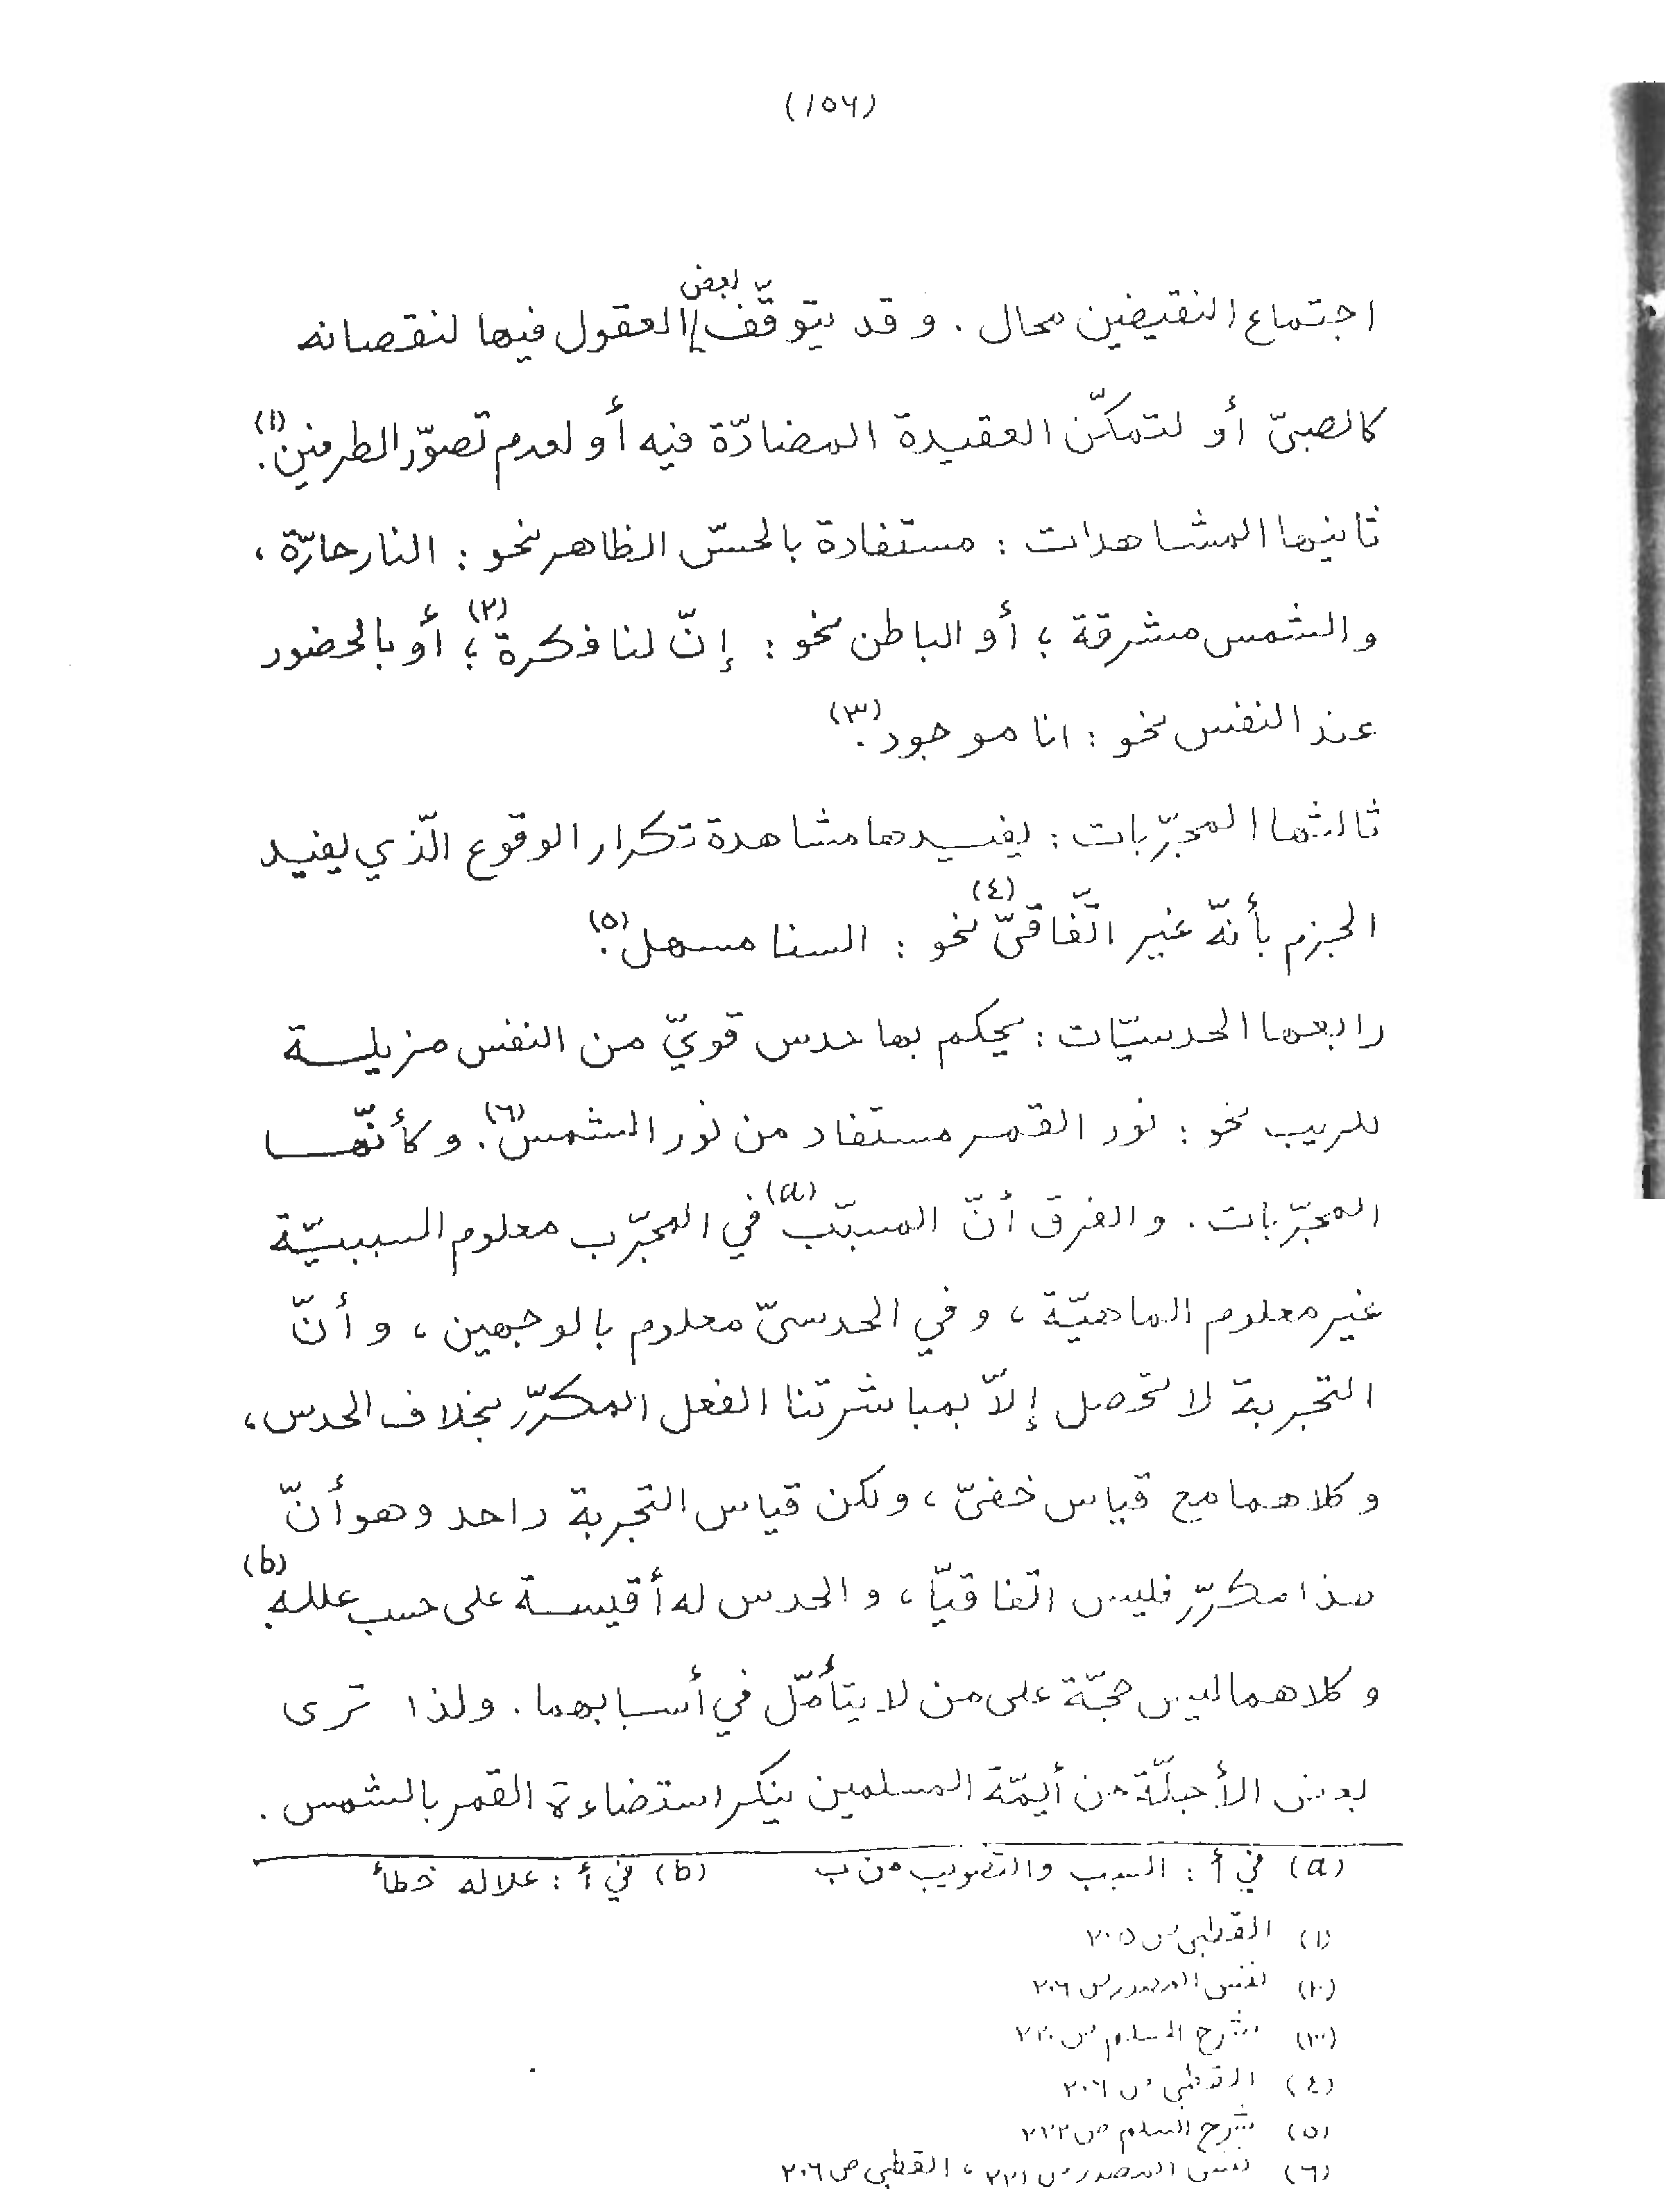 (١٥٦)
اجتماع النقيضين محال . و قد يتوقّف بعض العقول فيها لنقصانه
كالصبىّ أو لتمكّن العقيدة المضادّة فيه أو لعدم تصوّر الطرفين(١).
ثانيها المشاهدات : مستفادة بالحسّ الظاهر نحو : النار حارّة ،
والشمس مشرقة ؛ أو الباطن نحو : إنّ لنا فكرة(٢) ؛ أو بالحضور
عند النفس نحو : انا موجود(٣).
ثالثها المجرّبات : يفيدها مشاهدة تكرار الوقوع الّذي يفيد
الجزم بأنّه غير اتّفاقىّ(٤) نحو : السنا مسهل(٥).
رابعها الحدسيّات : يحكم بها حدس قويّ من النفس مزيلة
للريب نحو : نور القمر مستفاد من نور الشمس(٦). وكأنّها
المجرّبات . والفرق أنّ المسبّب(a) في المجرّب معلوم السببيّة
غير معلوم الماهيّة ، وفي الحدسىّ معلوم بالوجهين ، وأنّ
التجربة لا تحصل إلاّ بمباشرتنا الفعل المكرّر بخلاف الحدس ،
وكلاهما مع قياس خفىّ ، ولكن قياس التجربة واحد وهو أنّ
هذا مكرّر فليس اتفاقيّا ، والحدس له أقيسة على حسب علله(b).
وكلاهما ليس حجّة على من لا يتأمّل في أسبابهما . ولذا ترى
بعض الأجلّة من أيمّة المسلمين ينكر استضاءة القمر بالشمس .
(a) في أ : السبب والتصويب من ب (b) في أ : علاله خطأ
(١) القطبي ص ٢٠٥
(٢) نفس المصدر ص ٢٠٦
(٣) شرح السلم ص
(٤) القطبي ص ٢٠٦
(٥) شرح السلم ص
(٦) نفس المصدر ص ٢٢١ ، القطبي ص ٢٠٦